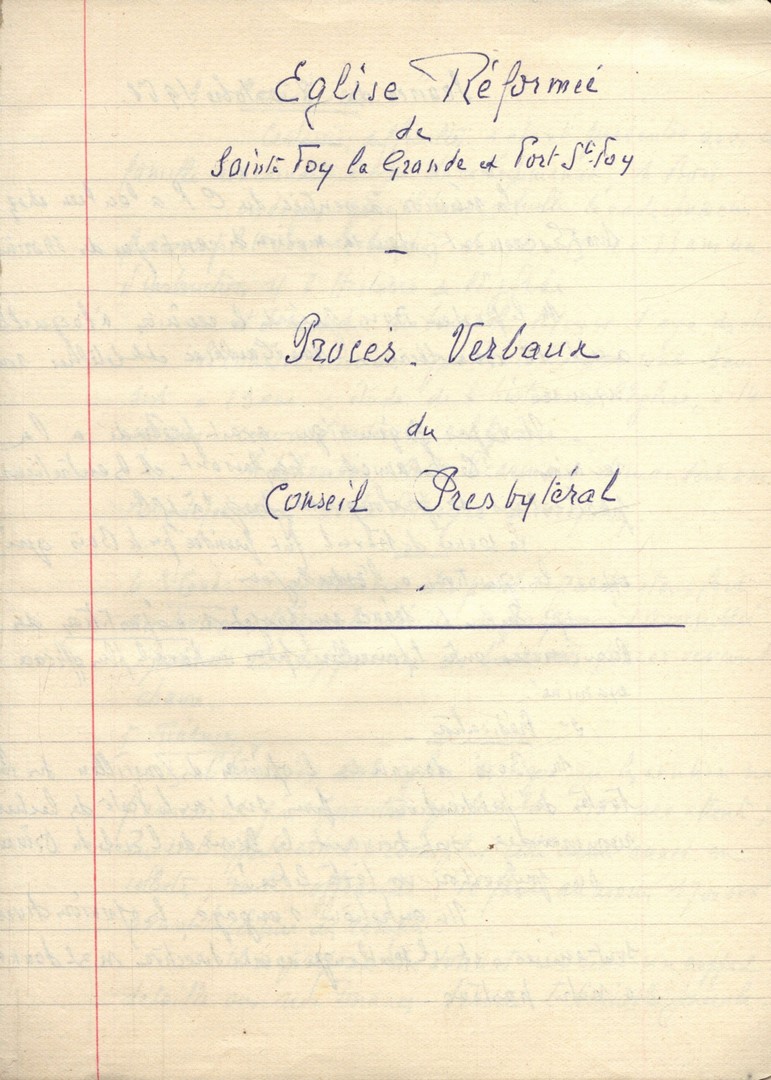 Eglise Réformée
de
Sainte Foy la Grande et Port Ste Foy
-
Procès-Verbaux
du
Conseil Presbytéral